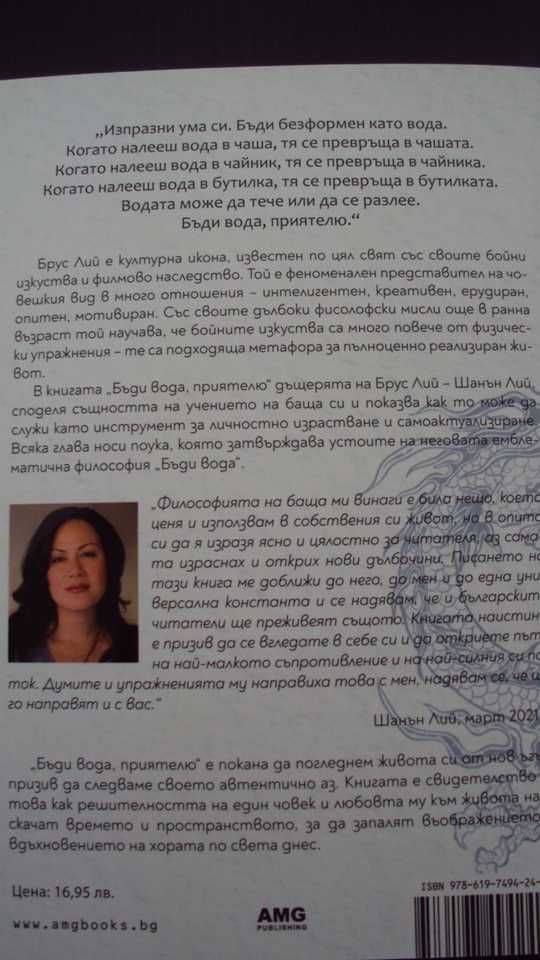 „Изпразни ума си. Бъди безформен като вода.
Когато налееш вода в чаша, тя се превръща в чашата.
Когато налееш вода в чайник, тя се превръща в чайника.
Когато налееш вода в бутилка, тя се превръща в бутилката.
Водата може да тече или да се разлее.
Бъди вода, приятелю.“
Брус Лий е културна икона, известен по цял свят със своите бойни
изкуства и филмово наследство. Той е феноменален представител на чо-
вешкия вид в много отношения – интелигентен, креативен, ерудиран,
опитен, мотивиран. Със своите дълбоки фисолофски мисли още в ранна
възраст той научава, че бойните изкуства са много повече от физичес-
ки упражнения – те са подходяща метафора за пълноценно реализиран жи-
вот.
В книгата „Бъди вода, приятелю“ дъщерята на Брус Лий – Шанън Лий,
споделя същността на учението на баща си и показва как то може да
служи като инструмент за личностно израстване и самоактуализиране.
Всяка глава носи поука, която затвърждава устоите на неговата embле-
матична философия „Бъди вода“.
„Философията на баща ми винаги е била нещо, което
ценя и използвам в собствения си живот, но в опита
си да я изразя ясно и цялостно за читателя, аз сама-
та израснах и открих нови дълбочини. Писането на
тази книга ме доближи до него, до мен и до една уни
версална константа и се надявам, че и българскит
читатели ще преживеят същото. Книгата наистин
е призив да се вгледате в себе си и да откриете път
на най-малкото съпротивление и на най-силния си по
ток. Думите и упражненията му направиха това с мен, надявам се, че щ
го направят и с вас.“
Шанън Лий, март 2021
„Бъди вода, приятелю“ е покана да погледнем живота си от нов ъгъ
призив да следваме своето автентично аз. Книгата е свидетелство
това как решителността на един човек и любовта му към живота на
скачат времето и пространството, за да запалят въображението
вдъхновението на хората по света днес.
Цена: 16,95 лв.
www.amgbooks.bg
AMG
PUBLISHING
ISBN 978-619-7494-24-